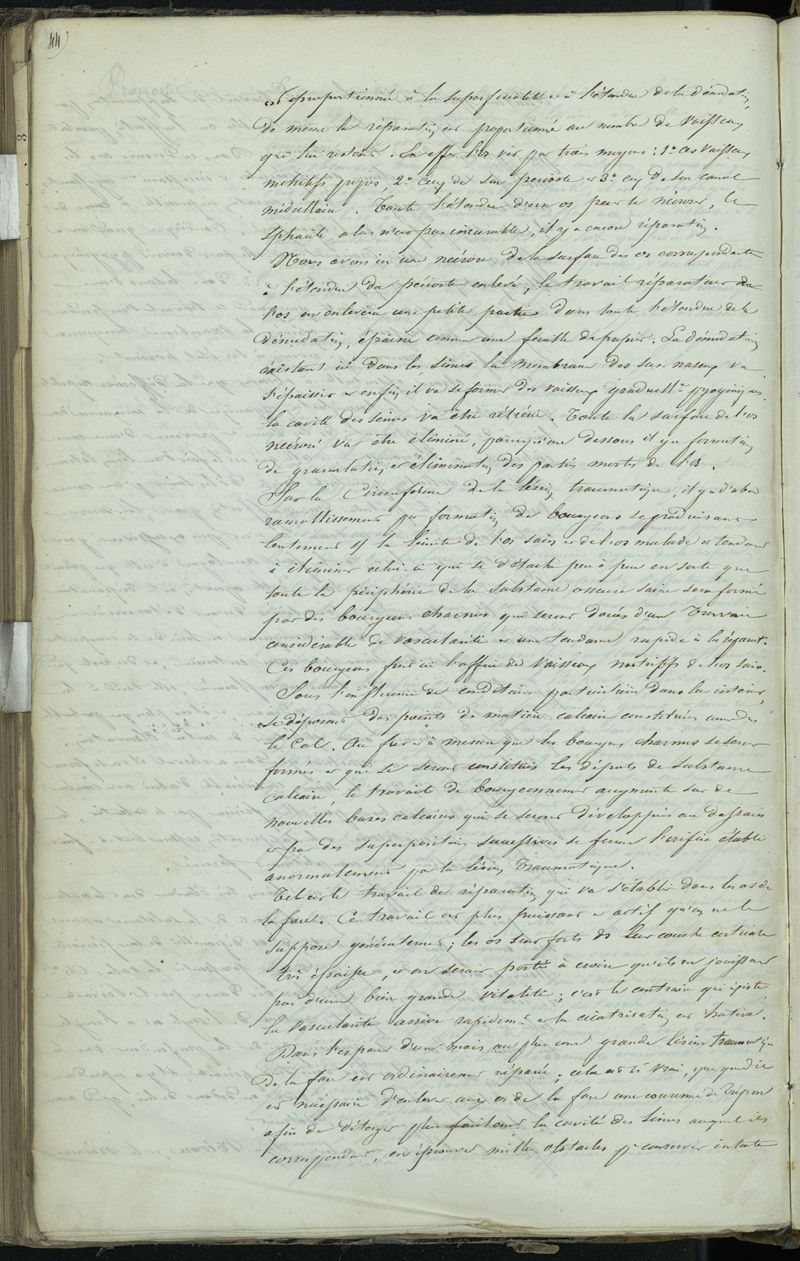 44)
est proportionnée à la superficialité et à l'étendue de la dénudation,
de même la réparation est proportionnée au nombre de vaisseaux
qui lui restent. En effet l'os vit par trois moyens : 1° ces vaisseaux
nutritifs propres, 2° ceux de son périoste et 3° ceux de son canal
médullaire. Toute l'étendue d'un os peut se nécroser, le
sphacèle alors n'est pas incurable, il y a encore réparation.
Nous avons ici une nécrose de la surface des os correspondante
à l'étendue du périoste enlevé, le travail réparateur de
l'os en enlevera une petite partie dans toute l'étendue de la
dénudation, épaisse comme une feuille de papier. La dénudation
existant ici dans les sinus la membrane des sus-naseaux va
s'épaissir et enfin il va se former des vaisseaux graduellt
la cavité des sinus va être rétrécie. Toute la surface de l'os
nécrosé va être éliminé, parce qu'au dessous il y a formation
de granulation et élimination des parties mortes de l'os.
Sur la circonférence de la lésion traumatique, il y a d'abord
ramollissement par formation de bourgeons se produisant
lentement sur la limite de l'os sain et de l'os malade et tendant
à éliminer celui-ci qui se détache peu à peu en sorte que
toute la périphérie de la substance osseuse saine sera formée
par des bourgeons charnus qui seront doués d'un travail
considérable de vascularité et une tendance rapide à la réparat.
Ces bourgeons font ici l'office de vaisseaux nutritifs de l'os sain.
Sous l'influence de conditions particulières dans leur intérieur,
se déposent des points de matière calcaire constitués comme dans
le cal. Au fur et à mesure que les bourgeons charnus se seront
formés et que se seront constitués les dépots de substance
calcaire, le travail de bourgeonnement augmente sur de
nouvelles bases calcaires qui se seront développées au dessous
et par des superpositions successives se ferme l'orifice établi
anormalement par la lésion traumatique.
Tel est le travail de réparation qui va s'établir dans les os de
la face. Ce travail est plus puissant et actif qu'on ne le
suppose généralement ; les os sont forts de leur couche corticale
très épaisse, et on serait porté à croire qu'ils ne jouissent
pas d'une bien grande vitalité ; c'est le contraire qui existe,
la vascularité arrive rapidemt et la cicatrisation est hative.
Dans l'espace d'un mois au plus une grande lésion traumatique
de la face est ordinairement réparée ; cela est si vrai, que quand il
est nécessaire d'enlever aux os de la face une couronne de trépan
afin de déterger plus facilement la cavité des sinus auquel ils
correspondent, on éprouve mille obstacles pr conserver intacte